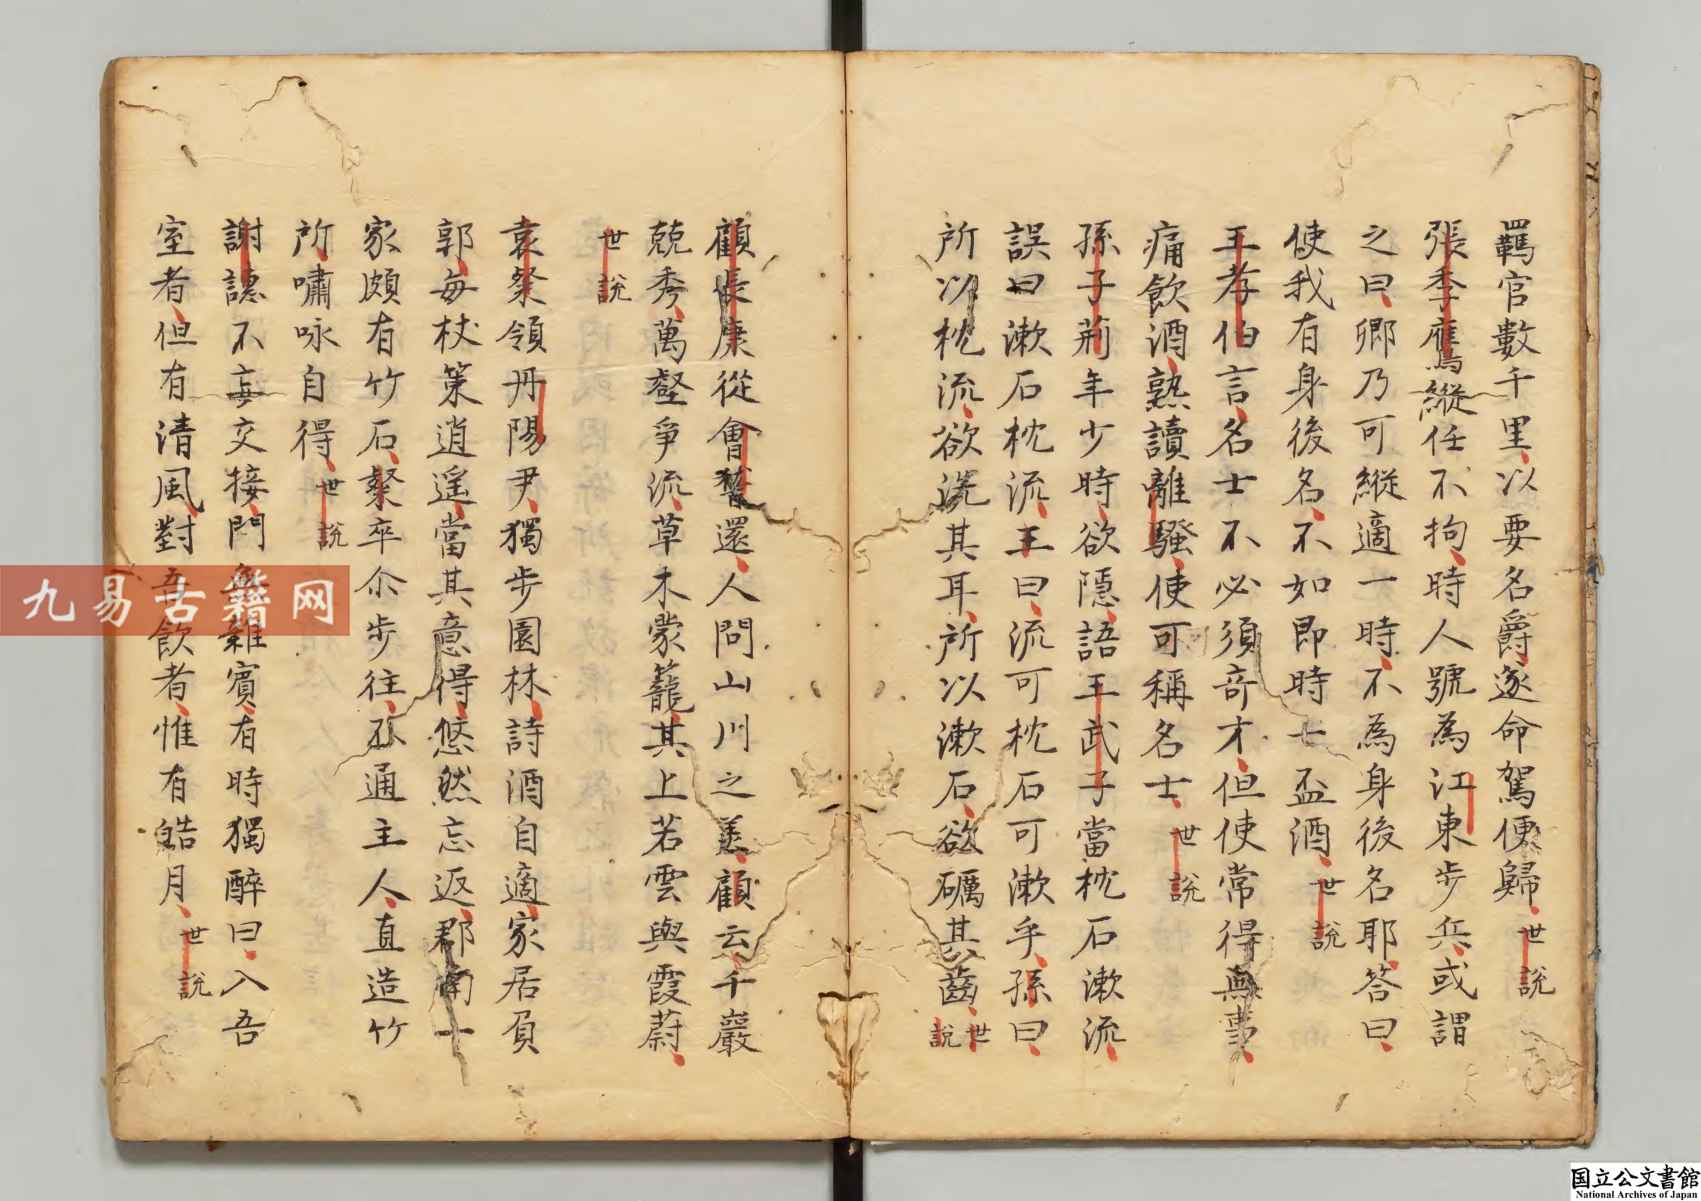 羈官數千里以要名爵遂命駕便歸世說
張季鷹縱任不拘時人號為江東步兵或謂
之曰卿乃可縱適一時不為身後名耶答曰
使我有身後名不如即時一盃酒世說
王孝伯言名士不必須奇才但使常得無事
痛飲酒熟讀離騷使可稱名士世說
孫子荊年少時欲隱語王武子當枕石漱流
誤曰漱石枕流王曰流可枕石可漱乎孫曰
所以枕流欲洗其耳所以漱石欲礪其齒世說
顧長康從會稽還人問山川之美顧云千巖
競秀萬壑爭流草木蒙籠其上若雲興霞蔚
世說
袁粲領丹陽尹獨步園林詩酒自適家居負
郭每杖策逍遙當其意得悠然忘返郡南一
家頗有竹石粲卒尒步往不通主人直造竹
所嘯咏自得世說
謝譓不妄交接門無雜賓有時獨醉曰入吾
室者但有清風對吾飲者惟有皓月世說
九易古籍网
国立公文書館
National Archives of Japan